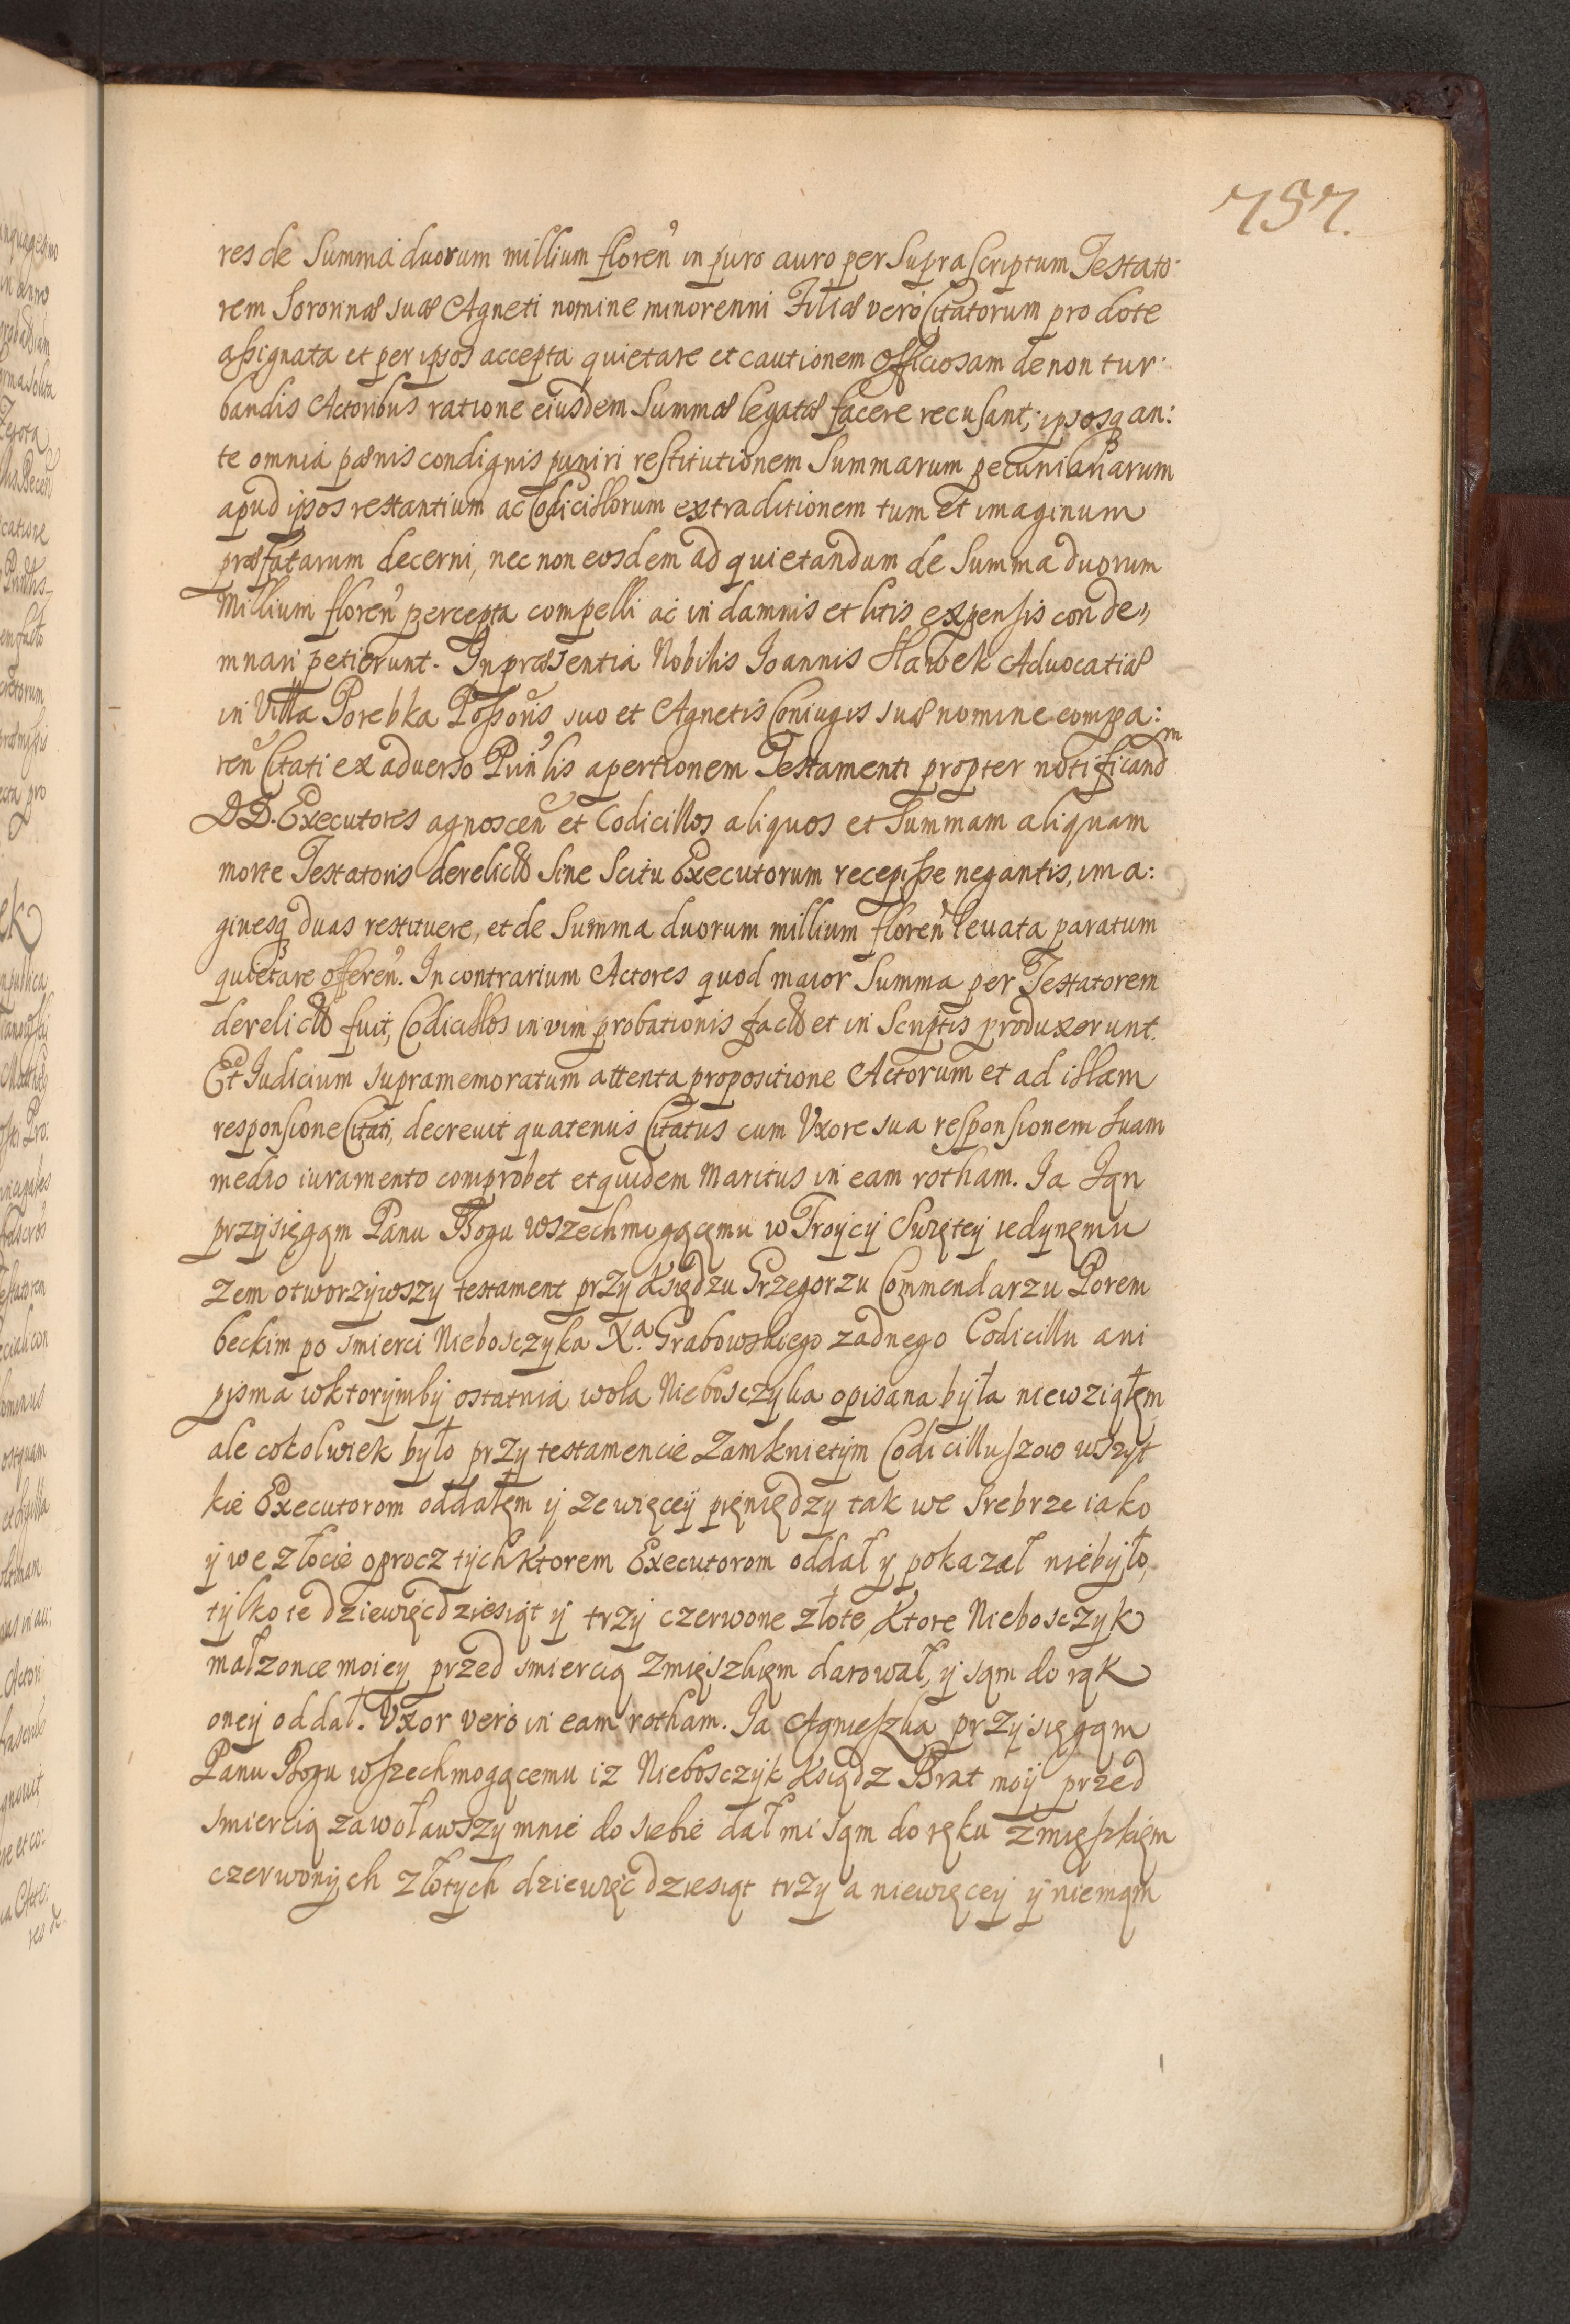 757.
res de Summa duorum millium floren̄ in puro auro per Suprascriptum Testato:
rem Sororinæ suæ Agneti nomine minorenni Filiæ verò Citatorum pro dote
assignata et per ipsos accepta quietare et cautionem officiosam de non tur:
bandis Actoribus ratione eiusdem Summæ legatæ facere recusant; ipsosq an:
te omnia pænis condignis puniri restitutionem Summarum pecuniariarum
apud ipsos restantium ac Codicillorum extraditionem tum et imaginum
præfatarum decerni, nec non eosdem ad quietandum de Summa duorum
Millium floren̄ percepta compelli ac in damnis et litis expensis conde,,
mnari petierunt. In præsentia Nobilis Ioannis Hawek Advocatiæ
in Villa Porebka Possoris suo et Agnetis Coniugis suæ nomine compa:
ren̄ Citati ex adverso Pun̄lis apertionem Testamenti propter notificand m
DD. Executores agnoscen̄ et Codicillos aliquos et Summam aliquam
morte Testatoris derelictā Sine Scitu Executorum recepisse negantis, ima:
ginesq duas restituere, et de Summa duorum millium floren̄ levata paratum
quietare offeren̄. In contrarium Actores quod maior Summa per Testatorem
derelicta fuit, Codicillos in vim probationis facto et in Scriptis produxerunt.
Et Iudicium supramemoratum attenta propositione Actorum et ad illam
responsione Citati, decrevit quatenus Citatus cum Uxore sua responsionem Suam
medio iuramento comprobet et quidem Maritus in eam rotham. Ia Ian
przysięgąm Panu Bogu wszechmogącęmu w Troycy Swiętey iedynęmu
zem otworzywszy testament przy Xsiędzu Grzegorzu Commendarzu Porem
beckim po smierci Nieboszczyka X.a Grabowskiego zadnego Codicillu ani
pisma wktorymby ostatnia wola Nieboszczyka opisana była niewziąłęm
ale cokolwiek było przy testamencie zamknietym Codicilluszow wszyt
kie Executorom oddałęm y ze więcey pięniędzy tak we Srebrze iako
y we złocie oprocz tych Ktorem Executorom oddał y pokazał niebyło,
tylko ie dziewięcdziesiąt y trzy czerwone złote, Ktore Nieboszczyk
małzonce moiey przed smiercią zmięszkięm darował, y sąm do rąk
oney oddał. Uxor verò in eam rotham. Ia Agnieszka przysięgąm
Panu Bogu wszechmogącemu iz Nieboszczyk Xsiądz Brat moy przed
smiercią zawoławszy mnie do siebie dał mi sąm do ręku zmięszkięm
czerwonych złotych dziewięcdziesiąt trzy a niewięcey y niemąm